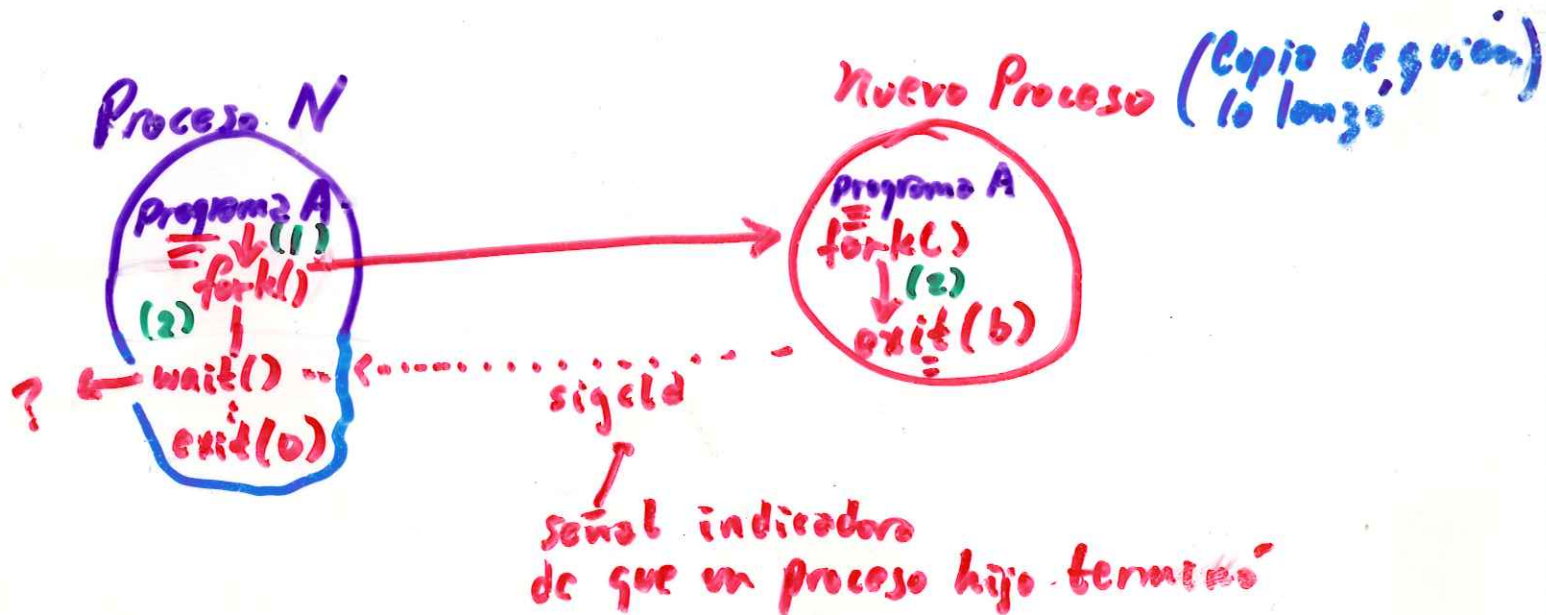 Proceso N
programa A
(1)
fork()
(2)
wait()
?
exit(0)
Nuevo Proceso
(Copia de quién
lo lanzó)
programa A
fork()
(2)
exit(b)
sigcld
señal indicadora
de que un proceso hijo terminó